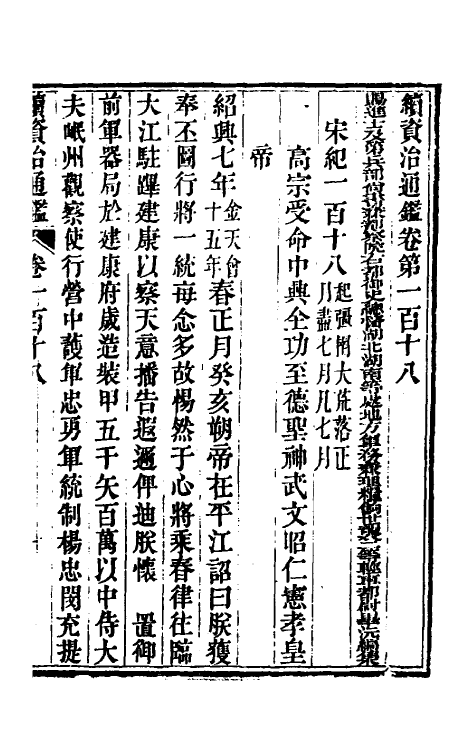 續資治通鑑卷第一百十八
賜進士及第兵部尚書兼都察院右都御史總督湖北湖南等處地方軍務兼理糧餉世襲二等輕車都尉畢沅編集
宋紀一百十八起彊圉大荒落正月盡七月凡七月
高宗受命中興全功至德聖神武文昭仁憲孝皇
帝
紹興七年金天會十五年春正月癸亥朔帝在平江詔曰朕獲
奉丕圖行將一統每念多故惕然于心將乘春律往臨
大江駐蹕建康以察天意播告遐邇俾迪朕懷 置御
前軍器局於建康府歲造裝甲五千矢百萬以中侍大
夫岷州觀察使行營中護軍忠勇軍統制楊忠閔充提
續資治通鑑 卷一百十八 一